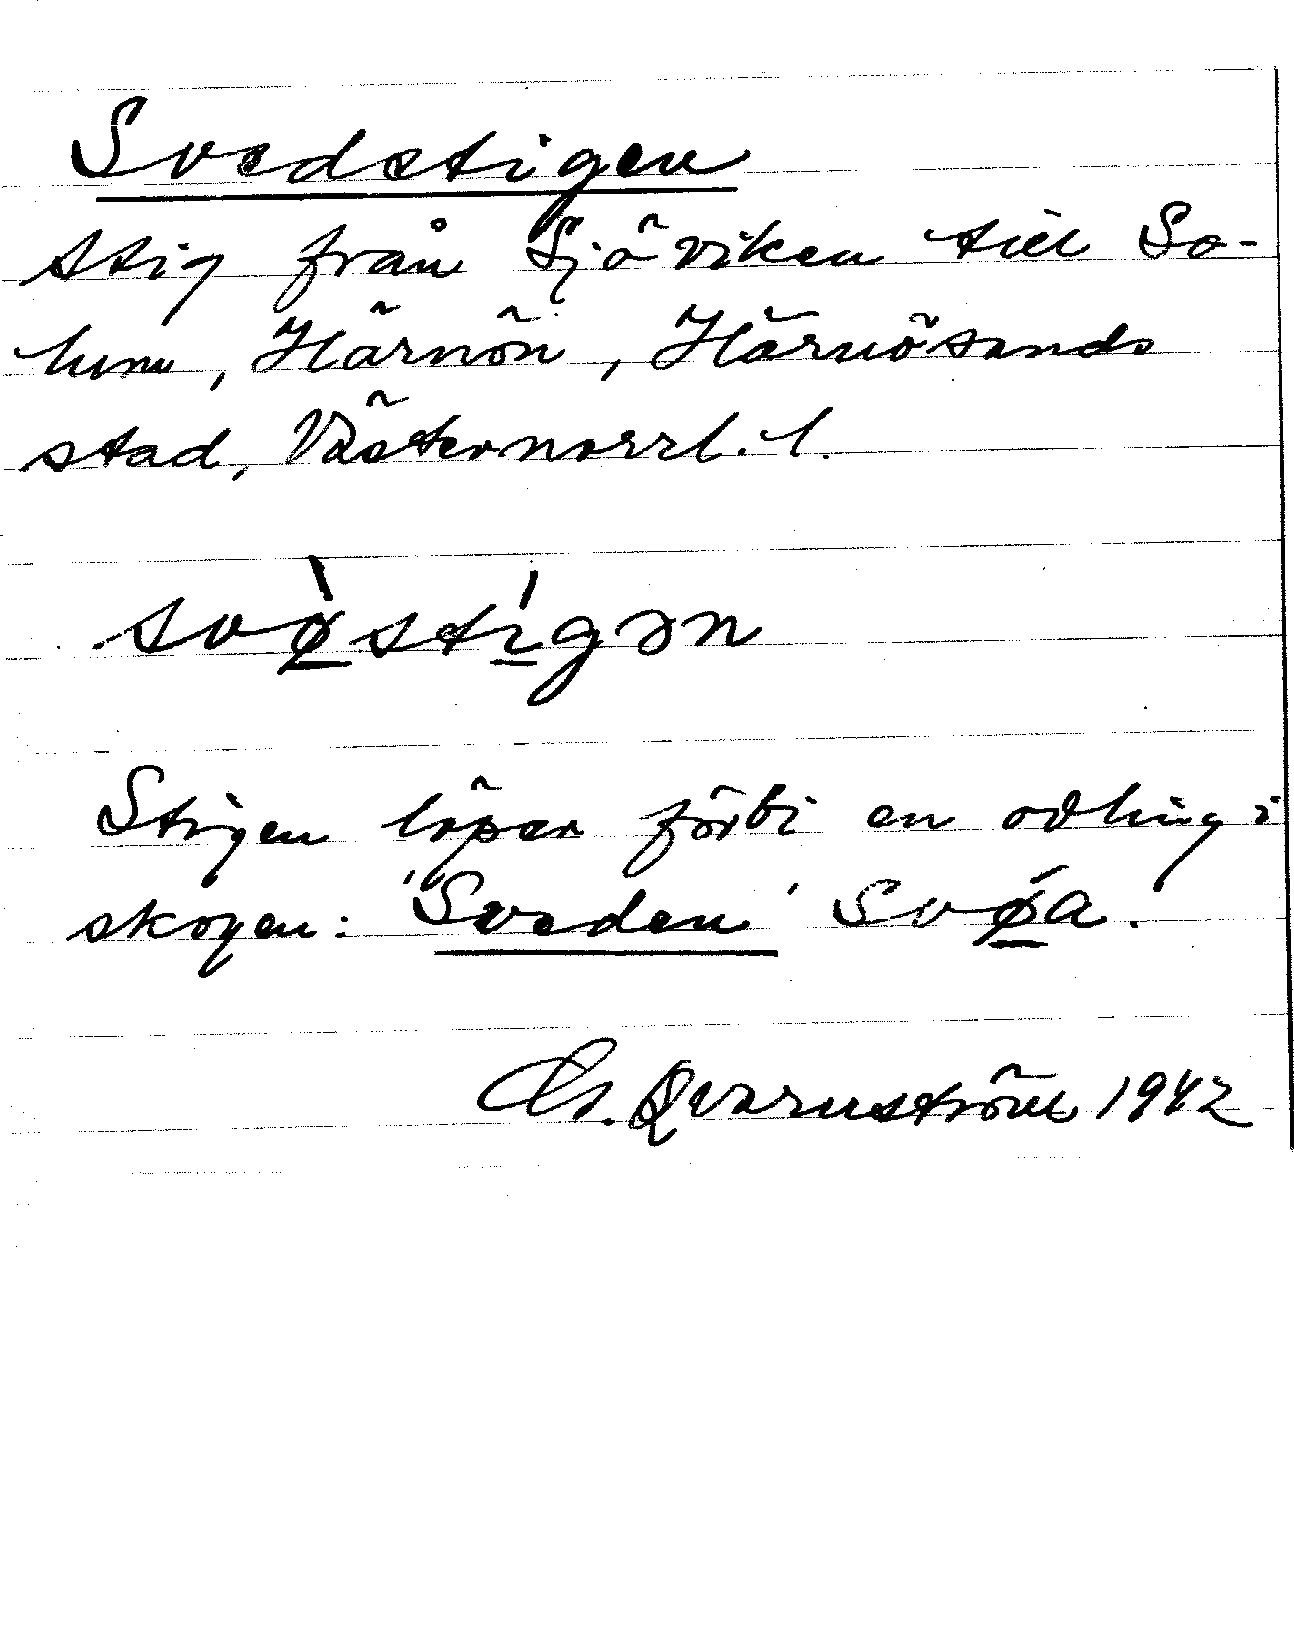 Svedstigen
stig från Sjöviken till So-
lum, Härnön, Härnösands
stad, Västernorrl. l.
svø̀stígən
Stigen löper förbi en odling i
skogen: 'Sveden' svøa.
Qvarnström 1942